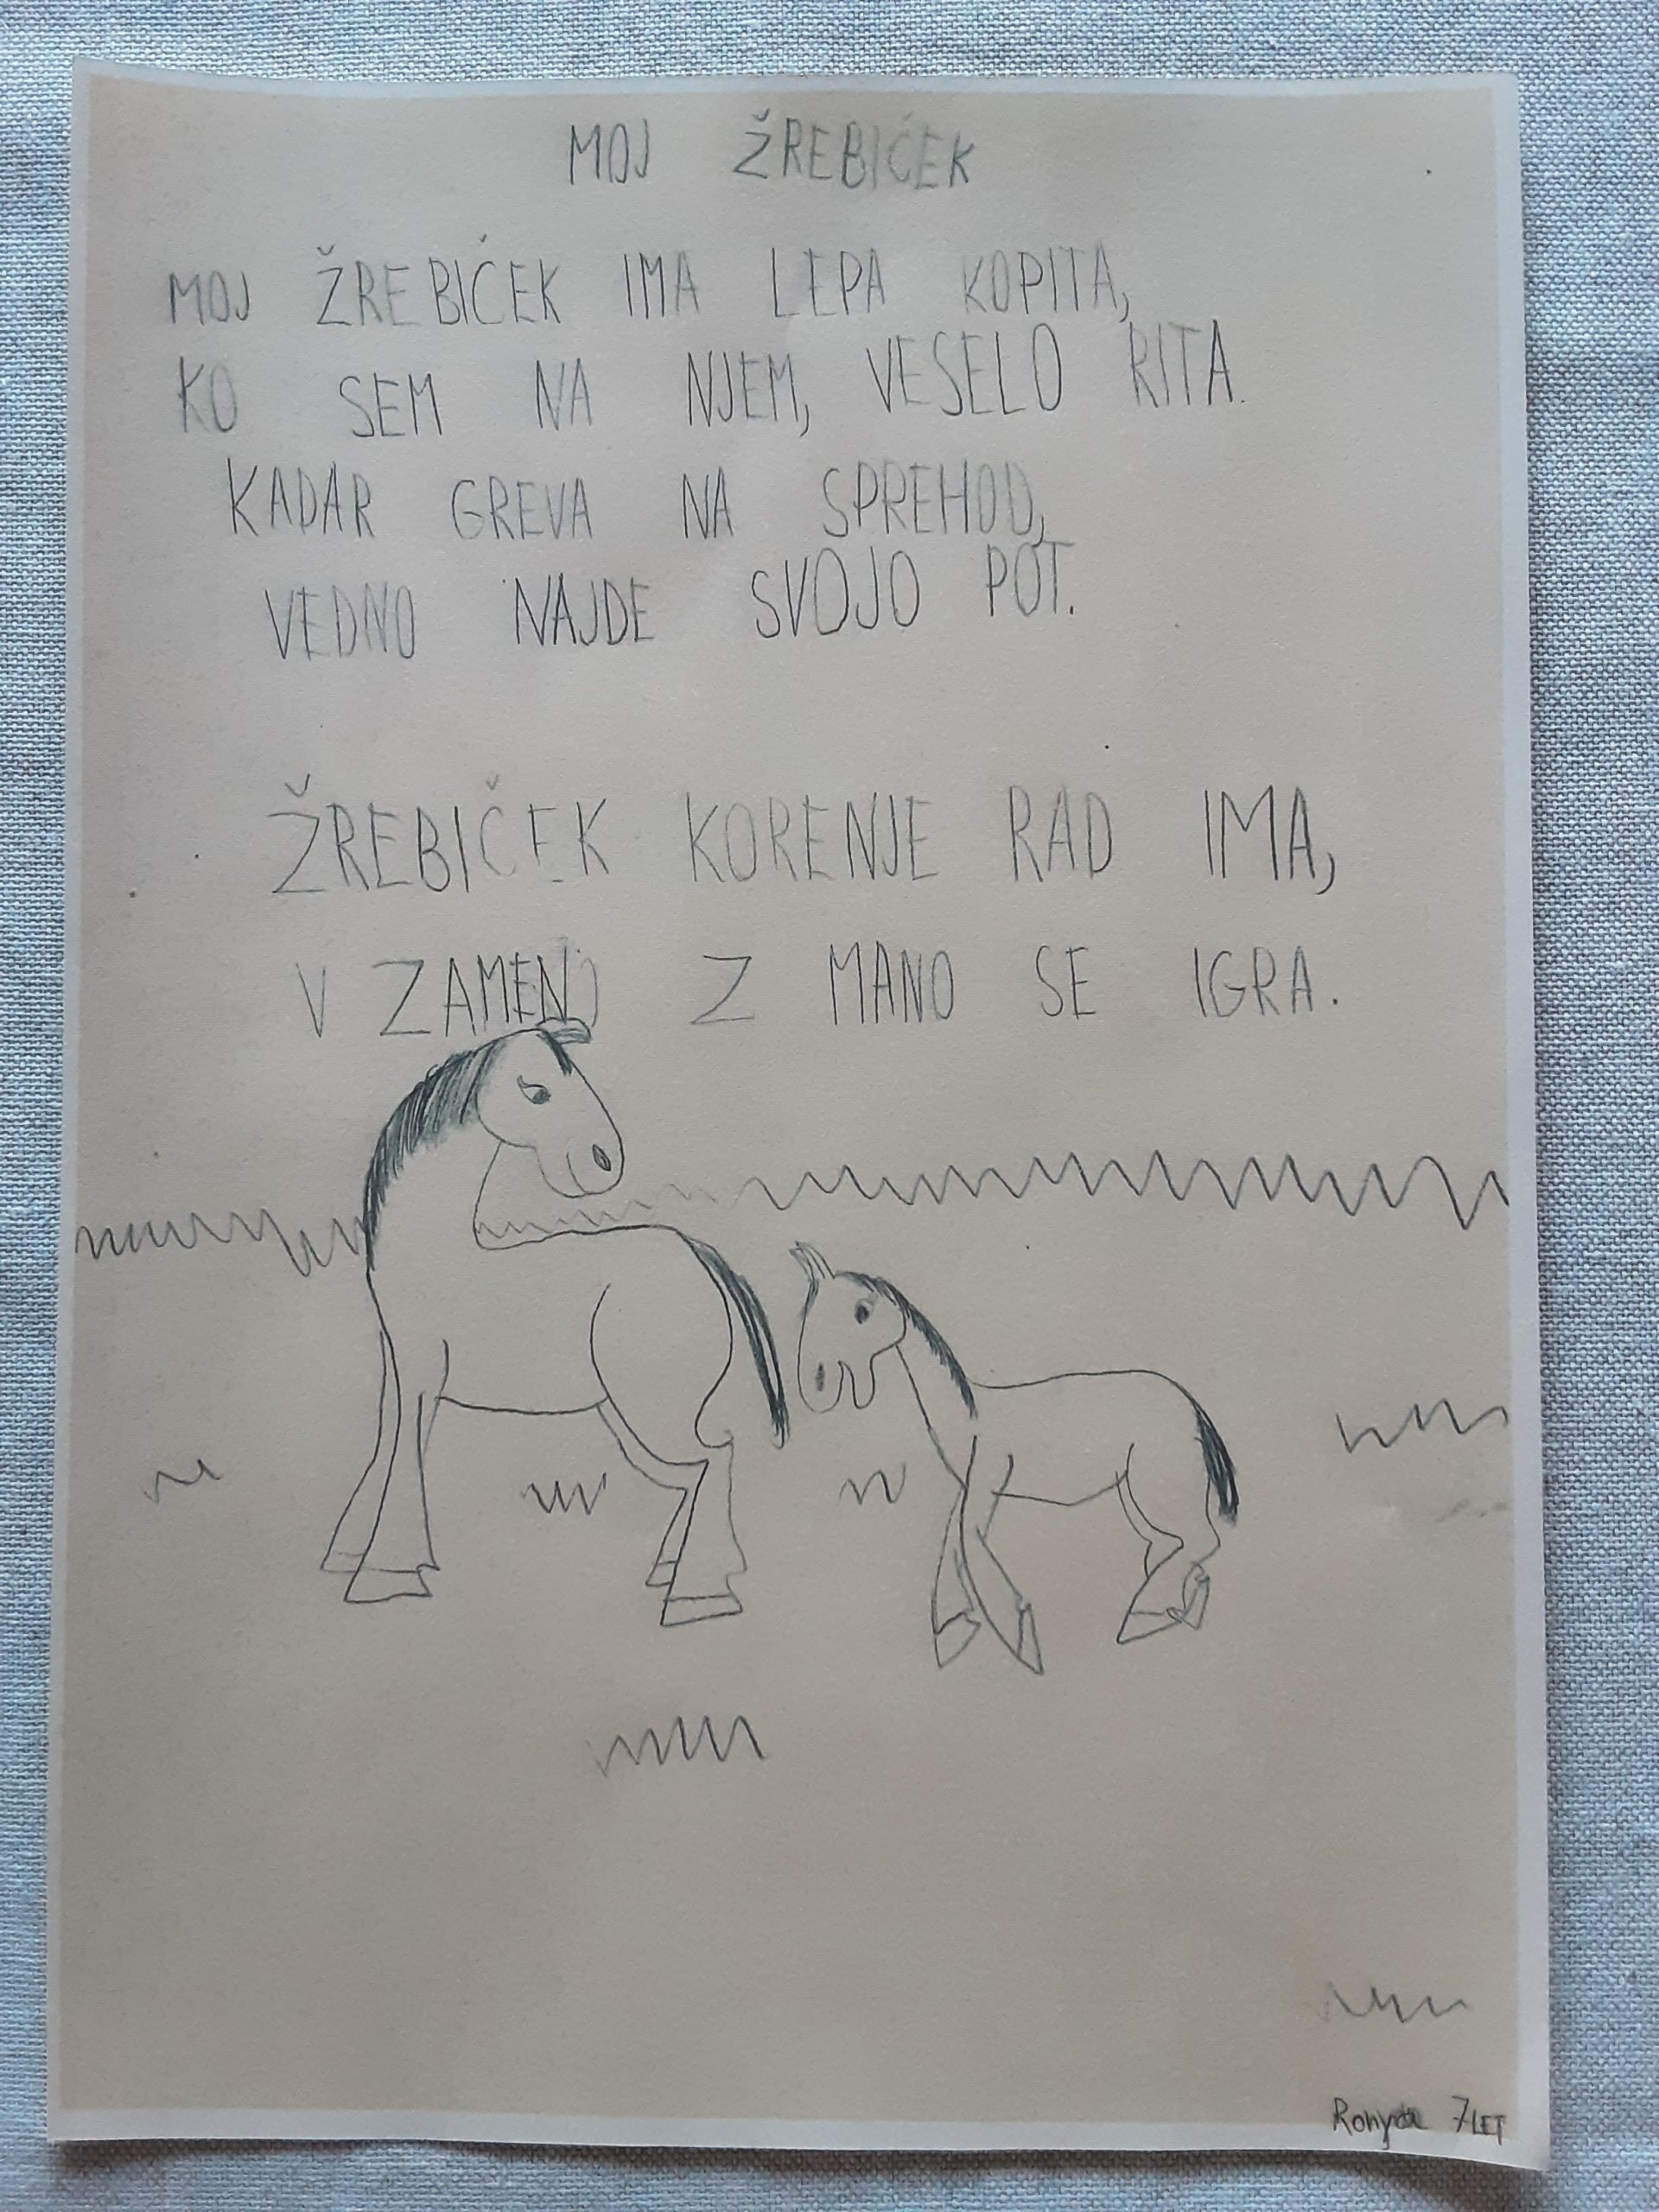 MOJ ŽREBIČEK
MOJ ŽREBIČEK IMA LEPA KOPITA,
KO SEM NA NJEM, VESELO RITA.
KADAR GREVA NA SPREHOD,
VEDNO NAJDE SVOJO POT.
ŽREBIČEK KORENJE RAD IMA,
V ZAMENO Z MANO SE IGRA.
7 LET